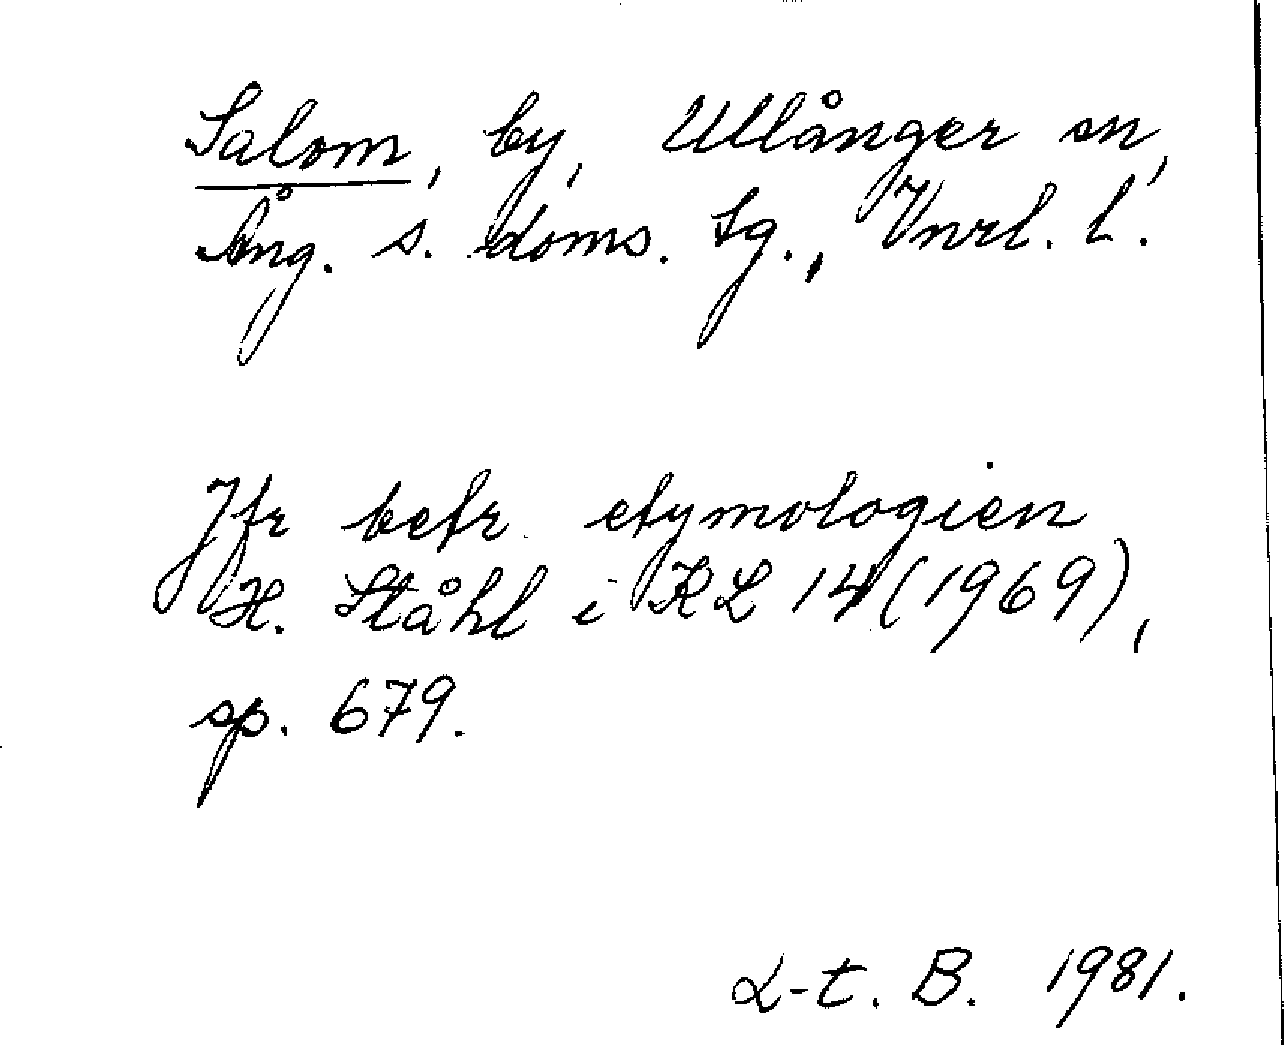 Salom, by, Ullånger sn,
Ång. s. doms. lg., Vnrl. l.
Jfr betr. etymologien
H. Ståhl i KL 14 (1969),
sp. 679.
L-t. B. 1981.